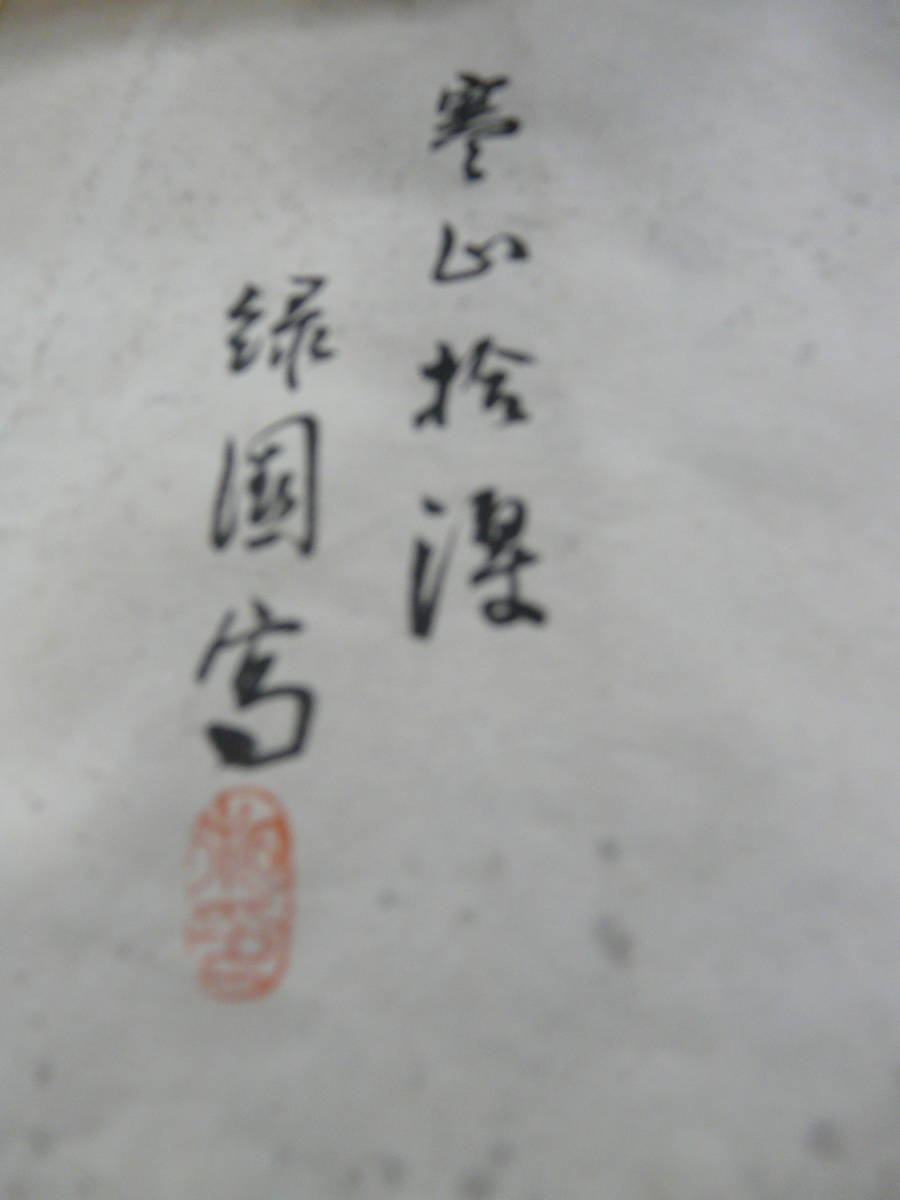 寒山拾得
緑園寫